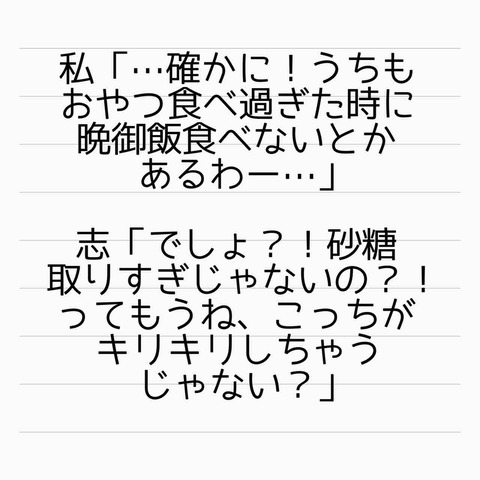 私「…確かに！うちも
おやつ食べ過ぎた時に
晩御飯食べないとか
あるわー…」
志「でしょ？！砂糖
取りすぎじゃないの？！
ってもうね、こっちが
キリキリしちゃう
じゃない？」